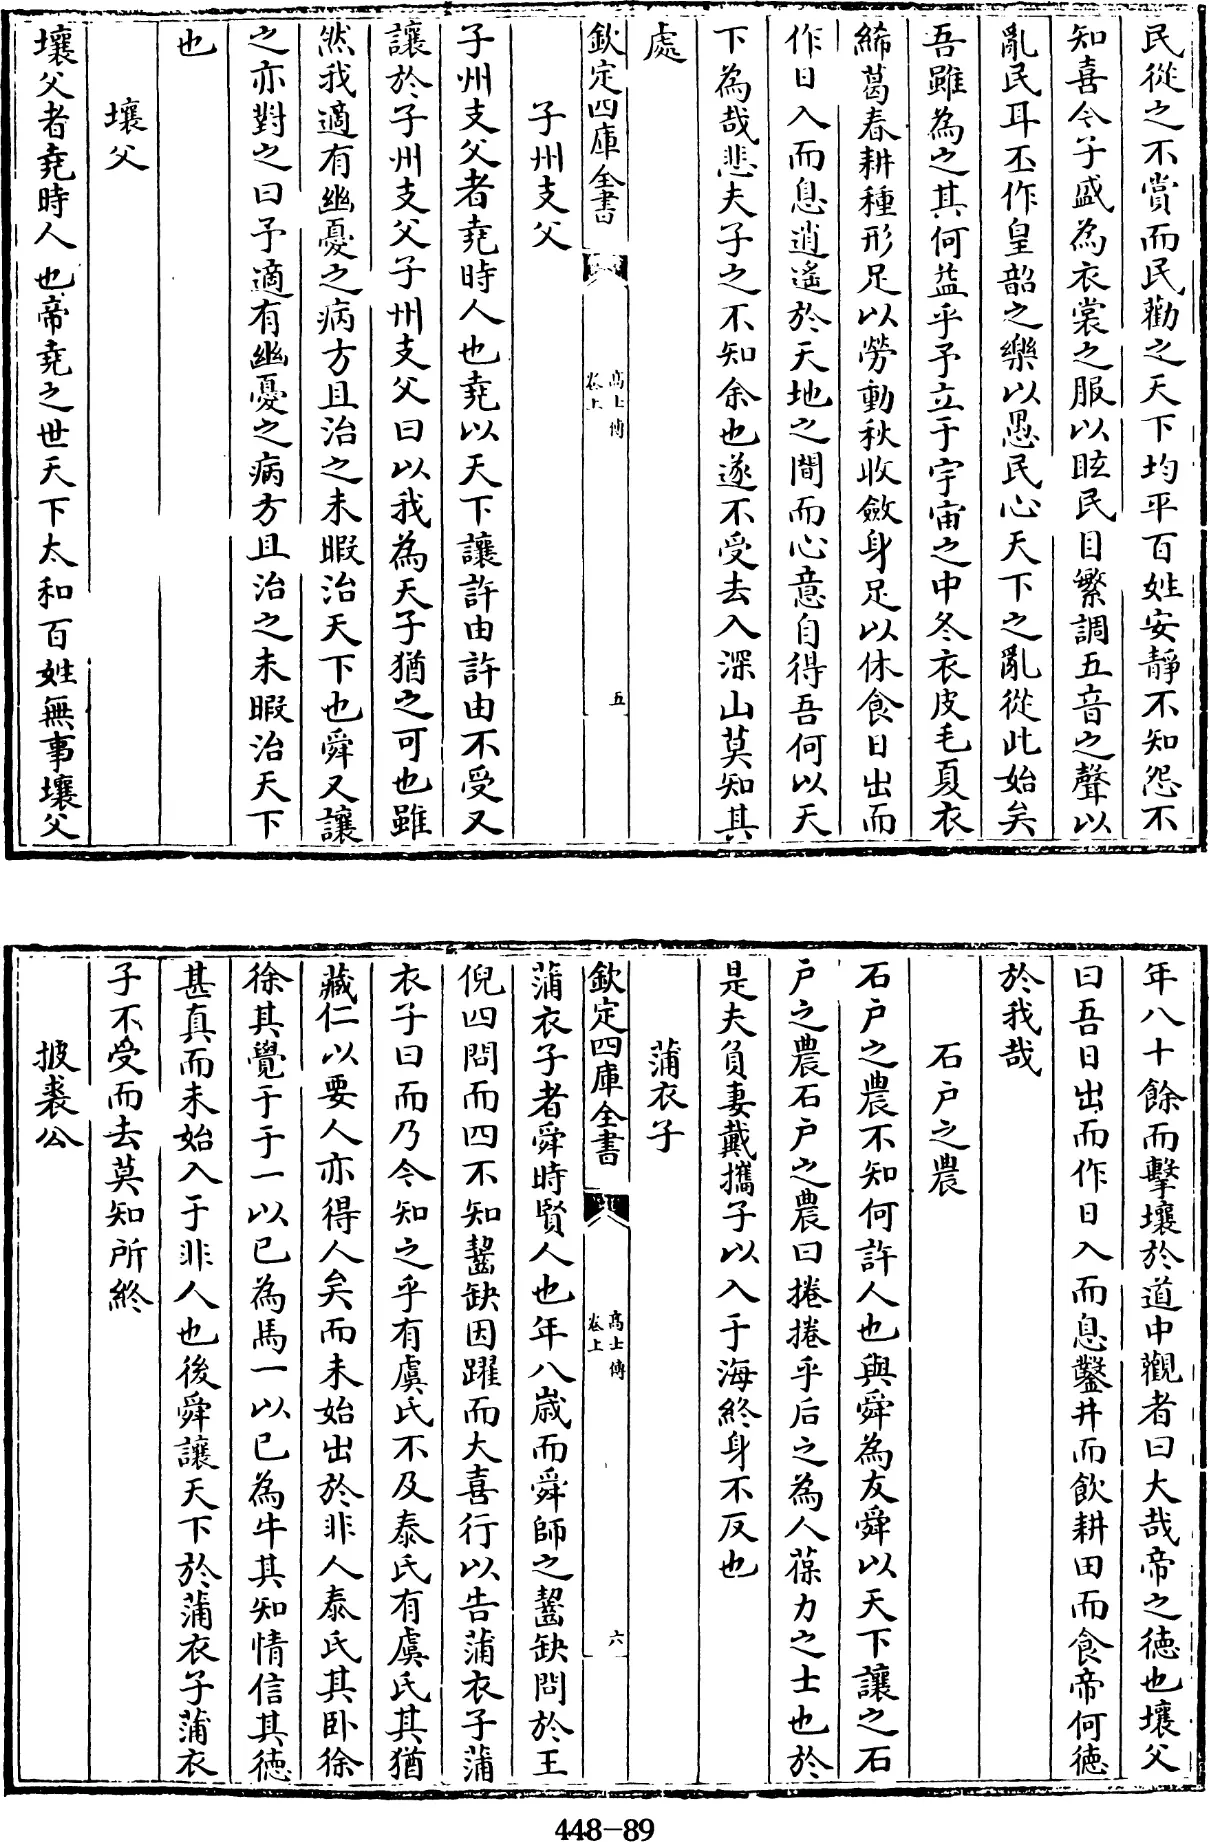 民從之不賞而民勸之天下均平百姓安靜不知怨不
知喜今子盛為衣裳之服以眩民目繁調五音之聲以
亂民耳丕作皇韶之樂以愚民心天下之亂從此始矣
吾雖為之其何益乎予立于宇宙之中冬衣皮毛夏衣
絺葛春耕種形足以勞動秋收斂身足以休食日出而
作日入而息逍遙於天地之間而心意自得吾何以天
下為哉悲夫子之不知余也遂不受去入深山莫知其
處
欽定四庫全書
高士傳
卷上
五
子州支父
子州支父者堯時人也堯以天下讓許由許由不受又
讓於子州支父子州支父曰以我為天子猶之可也雖
然我適有幽憂之病方且治之未暇治天下也舜又讓
之亦對之曰予適有幽憂之病方且治之未暇治天下
也
壤父
壤父者堯時人也帝堯之世天下太和百姓無事壤父
年八十餘而擊壤於道中觀者曰大哉帝之德也壤父
曰吾日出而作日入而息鑿井而飲耕田而食帝何德
於我哉
石戶之農
石戶之農不知何許人也與舜為友舜以天下讓之石
戶之農石戶之農曰捲捲乎后之為人葆力之士也於
是夫負妻戴攜子以入于海終身不反也
蒲衣子
欽定四庫全書
高士傳
卷上
六
蒲衣子者舜時賢人也年八歲而舜師之齧缺問於王
倪四問而四不知齧缺因躍而大喜行以告蒲衣子蒲
衣子曰而乃今知之乎有虞氏不及泰氏有虞氏其猶
藏仁以要人亦得人矣而未始出於非人泰氏其臥徐
徐其覺于于一以已為馬一以已為牛其知情信其德
甚真而未始入于非人也後舜讓天下於蒲衣子蒲衣
子不受而去莫知所終
披裘公
448-89